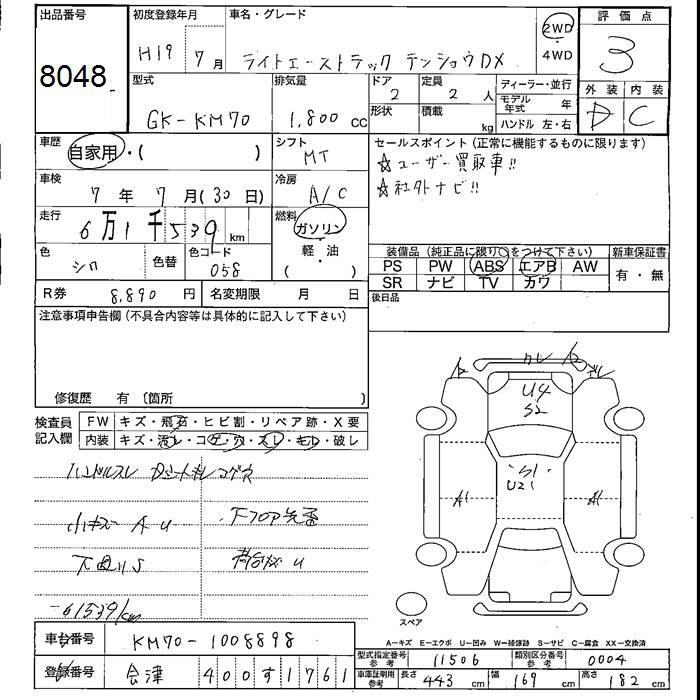 出品番号 初度登録年月 車名・グレード 評価点
8048 H19年 7月 ライトエーストラック テンショウDX 2WD ・ 4WD 3
型式 排気量 ドア 定員 ディーラー・並行 外装 内装
GK-KM70 1,800 cc 2 2 人 モデル年式 年 D C
形状 積載 kg ハンドル 左・右
車歴 自家用・( ) シフト MT
セールスポイント(正常に機能するものに限ります)
☆ユーザー買取車!!
☆社外ナビ!!
車検 7年 7月(30日) 冷房 A/C
走行 6万1千539km 燃料 ガソリン・軽・油 ( )
色 シロ 色替 色コード 058
装備品(純正品に限り○をつけて下さい) 新車保証書
PS PW ABS エアB AW 有・無
SR ナビ TV カワ
R券 8,890 円 名変期限 月 日 後日品
注意事項申告欄(不具合内容等は具体的に記入して下さい)
修復歴 有(箇所 )
検査員記入欄 FW キズ・飛石・ヒビ割・リペア跡・X要
内装 キズ・汚レ・コゲ・穴・スレ・キレ・破レ
ハンドルスレ
小キズ A U
下廻りS
61539km
U4
S2
S1
U2
A1
A1
スペア
A－キズ E－エクボ U－凹み W－補修跡 S－サビ C－腐食 XX－交換済
車台番号 KM70-1008898
型式指定番号 参考 11506 類別区分番号 参考 0004
登録番号 会津 400す1761
車庫証明用 参考 長さ 443 cm 幅 169 cm 高さ 182 cm